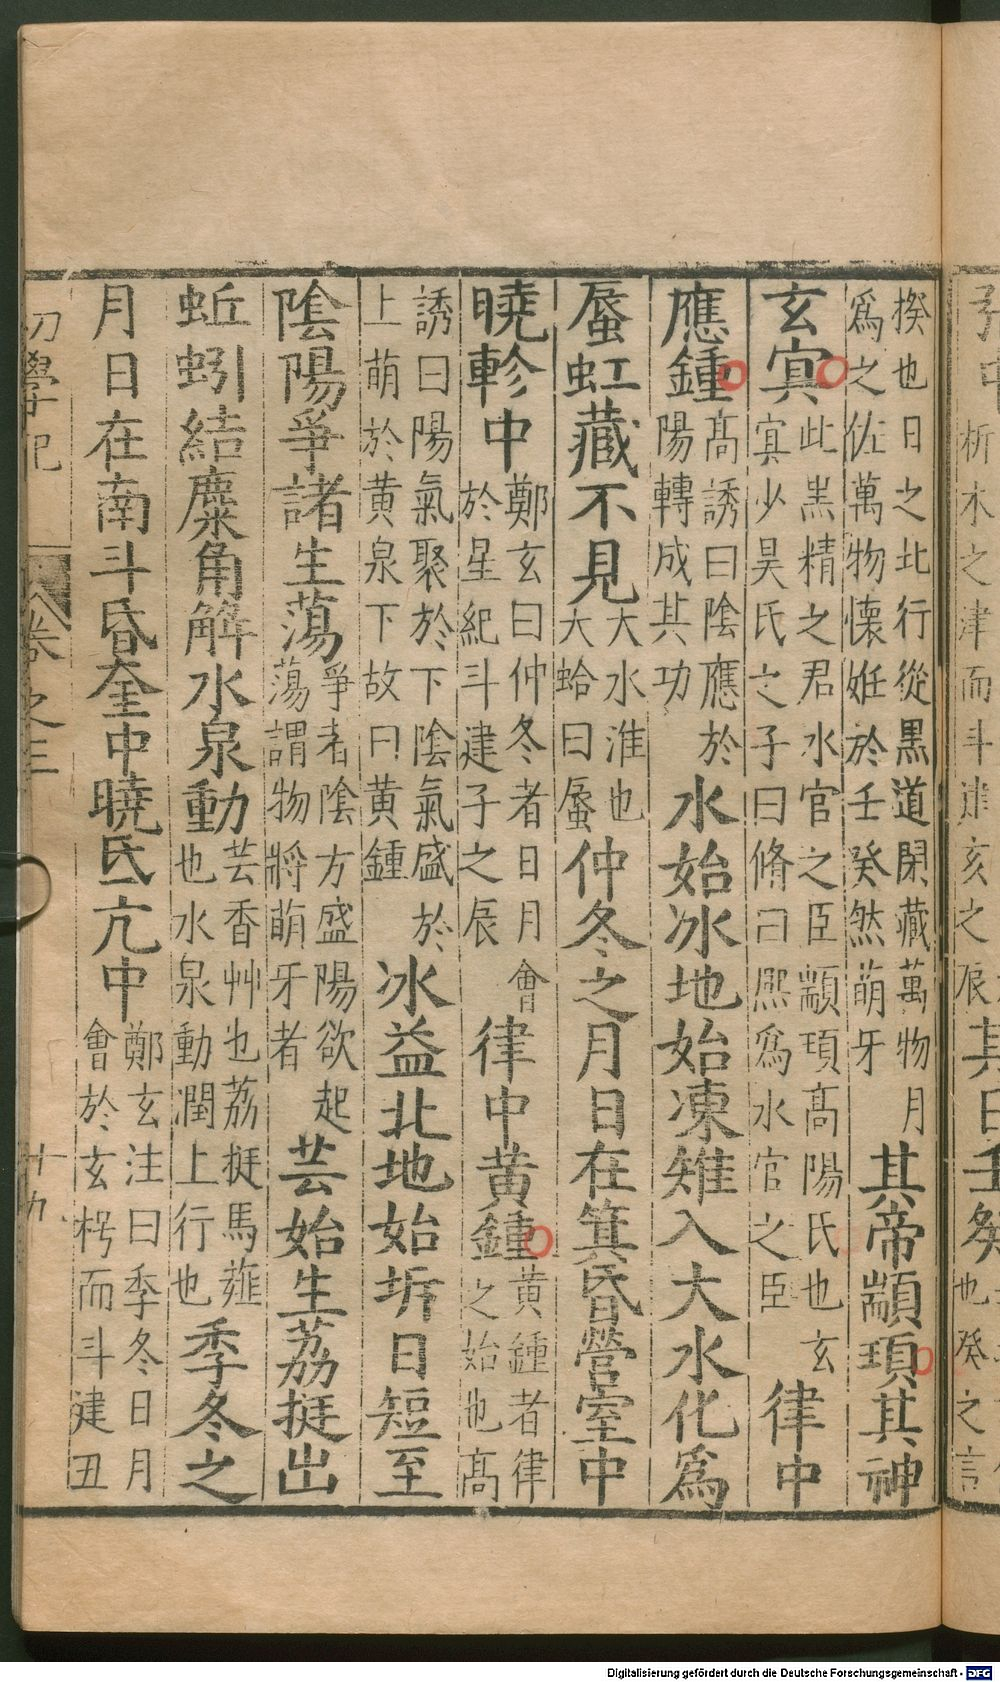 析木之津而斗建亥之辰其日壬癸也癸之言
揆也日之北行從黒道閉藏萬物月爲之佐萬物懷姙於壬癸然萌牙其帝顓頊其神
玄㝠此黒精之君水官之臣顓頊高陽氏也玄㝠少昊氏之子曰脩曰熈爲水官之臣律中
應鍾高誘曰陰應於陽轉成其功水始冰地始凍雉入大水化爲
蜃虹藏不見大水淮也大蛤曰蜃仲冬之月日在箕昏營室中
曉軫中鄭玄曰仲冬者日月會於星紀斗建子之辰律中黄鍾黄鍾者律之始也高
誘曰陽氣聚於下陰氣盛於上萌於黄泉下故曰黄鍾冰益北地始坼日短至
陰陽爭諸生蕩爭者陰方盛陽欲起蕩謂物將萌牙者芸始生荔挺出
蚯蚓結麋角解水泉動芸香艸也荔挺馬薤也水泉動潤上行也季冬之
月日在南斗昏奎中曉氐亢中鄭玄注曰季冬日月會於玄枵而斗建丑
初學記 卷之三 十九
Digitalisierung gefördert durch die Deutsche Forschungsgemeinschaft - DFG